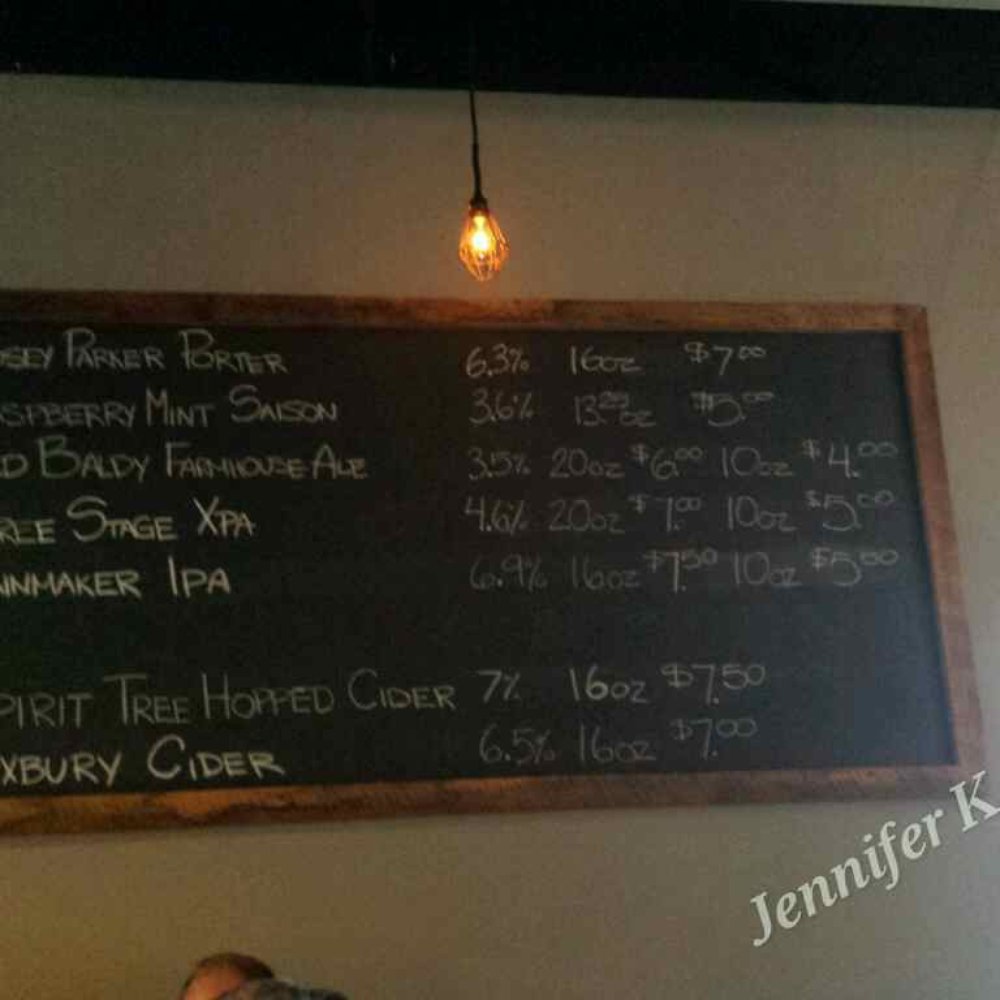 SEY PARKER PORTER 6.3% 16oz $7.00
SPBERRY MINT SAISON 3.6% 13.25oz $5.00
D BALDY FARMHOUSE ALE 3.5% 20oz $6.00 10oz $4.00
REE STAGE XPA 4.6% 20oz $7.00 10oz $5.00
INMAKER IPA 6.9% 16oz $7.50 10oz $5.00
PIRIT TREE HOPPED CIDER 7% 16oz $7.50
XBURY CIDER 6.5% 16oz $7.00
Jennifer K